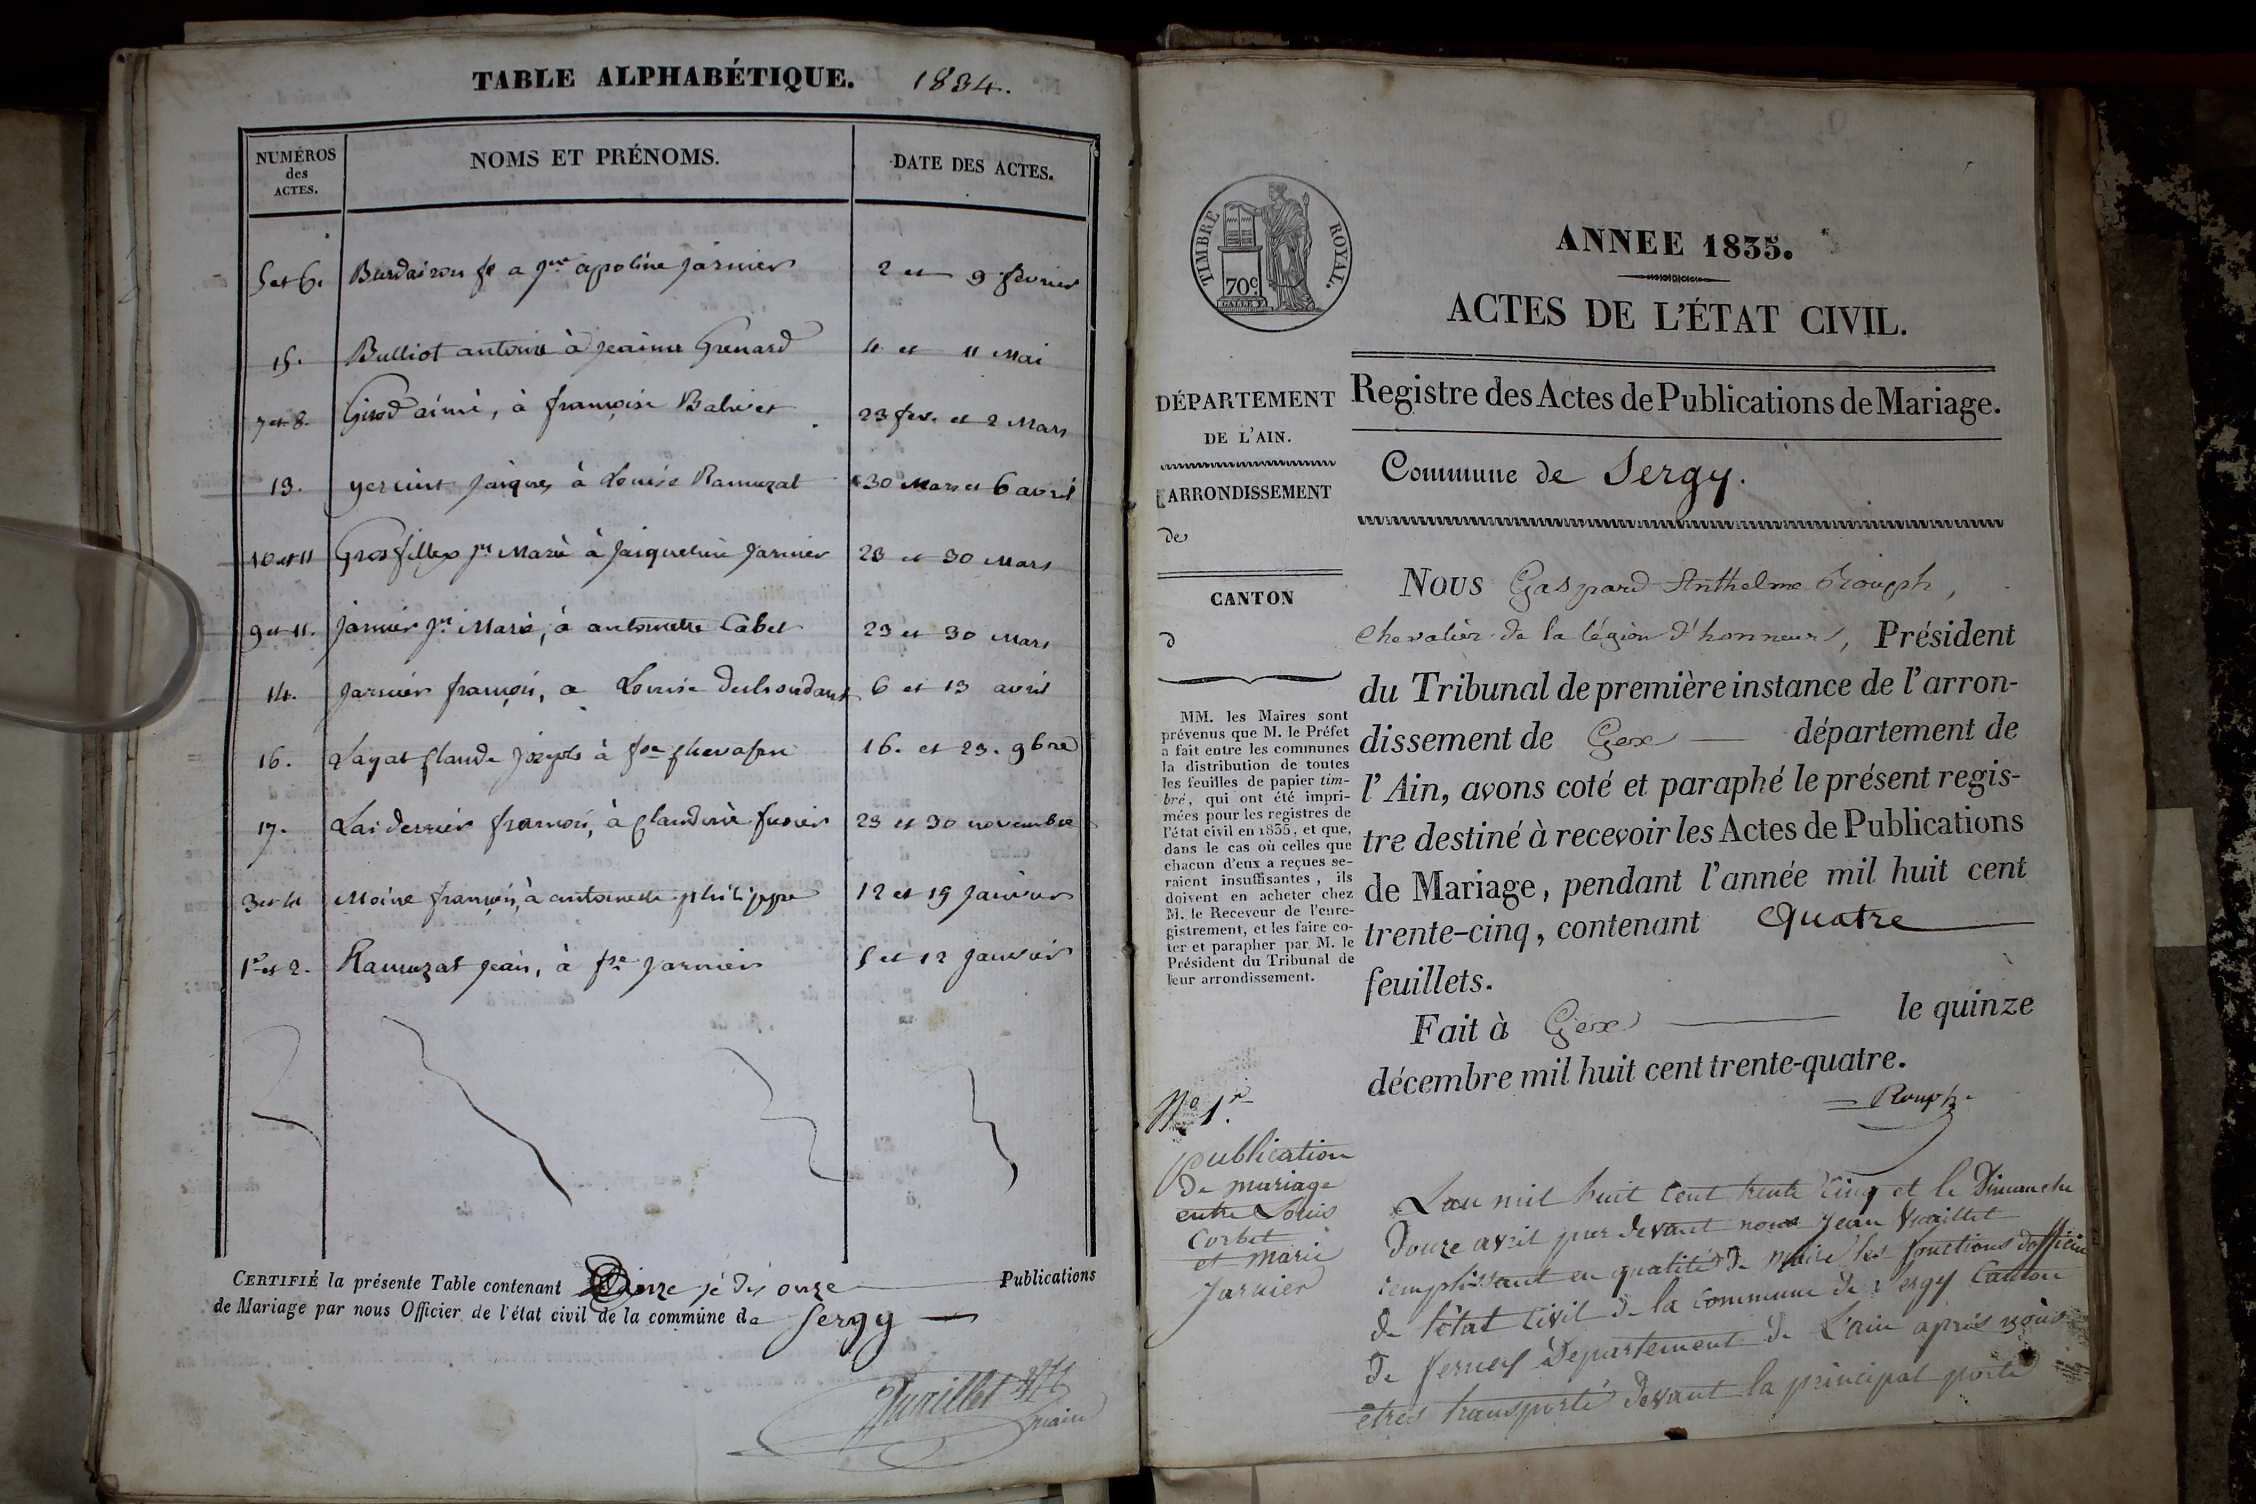 TABLE ALPHABÉTIQUE. 1834.
NUMÉROS
des
ACTES.
NOMS ET PRÉNOMS.
DATE DES ACTES.
5 et 6. a apoline Jarnier 2 et 9 février
15. Bulliot antoine à Jeanne Grenard 4 et 11 Mai
7 et 8. Girod aimé, à françoise Babivet 23 fev. et 2 Mars
13. Jaiques à Louise Ramuzat 30 Mars et 6 avril
10 et 11 Grosfillex Jn Marie à Jaiqueline Jarnier 23 et 30 Mars
9 et 11. Jarnier Jn Marie, à antoinette Cabet 23 et 30 Mars
14. Jarnier françois, a Louise 6 et 13 avril
16. Layat Claude Joseph à fse 16. et 23. 9bre
17. Laiderrier françois, à Claudine fusier 23 et 30 novembre
3 et 4 Moine françois, à antoinette philippe 12 et 19 Janvier
1er et 2. Ramuzat Jean, à fse Jarnier 5 et 12 Janvier
CERTIFIÉ la présente Table contenant onze Publications
de Mariage par nous Officier de l'état civil de la commune de Sergy
Vuaillet
maire
TIMBRE ROYAL.
70c.
ANNEE 1835.
ACTES DE L'ÉTAT CIVIL.
DÉPARTEMENT
DE L'AIN.
ARRONDISSEMENT
de
CANTON
d
MM. les Maires sont
prévenus que M. le Préfet
a fait entre les communes
la distribution de toutes
les feuilles de papier tim-
bré, qui ont été impri-
mées pour les registres de
l'état civil en 1835, et que,
dans le cas où celles que
chacun d'eux a reçues se-
raient insuffisantes, ils
doivent en acheter chez
M. le Receveur de l'enre-
gistrement, et les faire co-
ter et parapher par M. le
Président du Tribunal de
leur arrondissement.
Registre des Actes de Publications de Mariage.
Commune de Sergy.
NOUS Gaspard Anthelme Rouph,
chevalier de la légion d'honneur, Président
du Tribunal de première instance de l'arron-
dissement de Gex département de
l'Ain, avons coté et paraphé le présent regis-
tre destiné à recevoir les Actes de Publications
de Mariage, pendant l'année mil huit cent
trente-cinq, contenant Quatre
feuillets.
Fait à Gex le quinze
décembre mil huit cent trente-quatre.
Rouph.
No 1r.
publication
de mariage
entre Louis
Corbet
et marie
Jarnier
L'an mil huit cent trente cinq et le Dimanche
Douze avril par devant nous Jean Vuaillet
remplissant en qualité de maire les fonctions d'officier
de l'état civil de la commune de Sergy Canton
de ferney Département de L'ain après nous
êtres transporté devant la principal porte